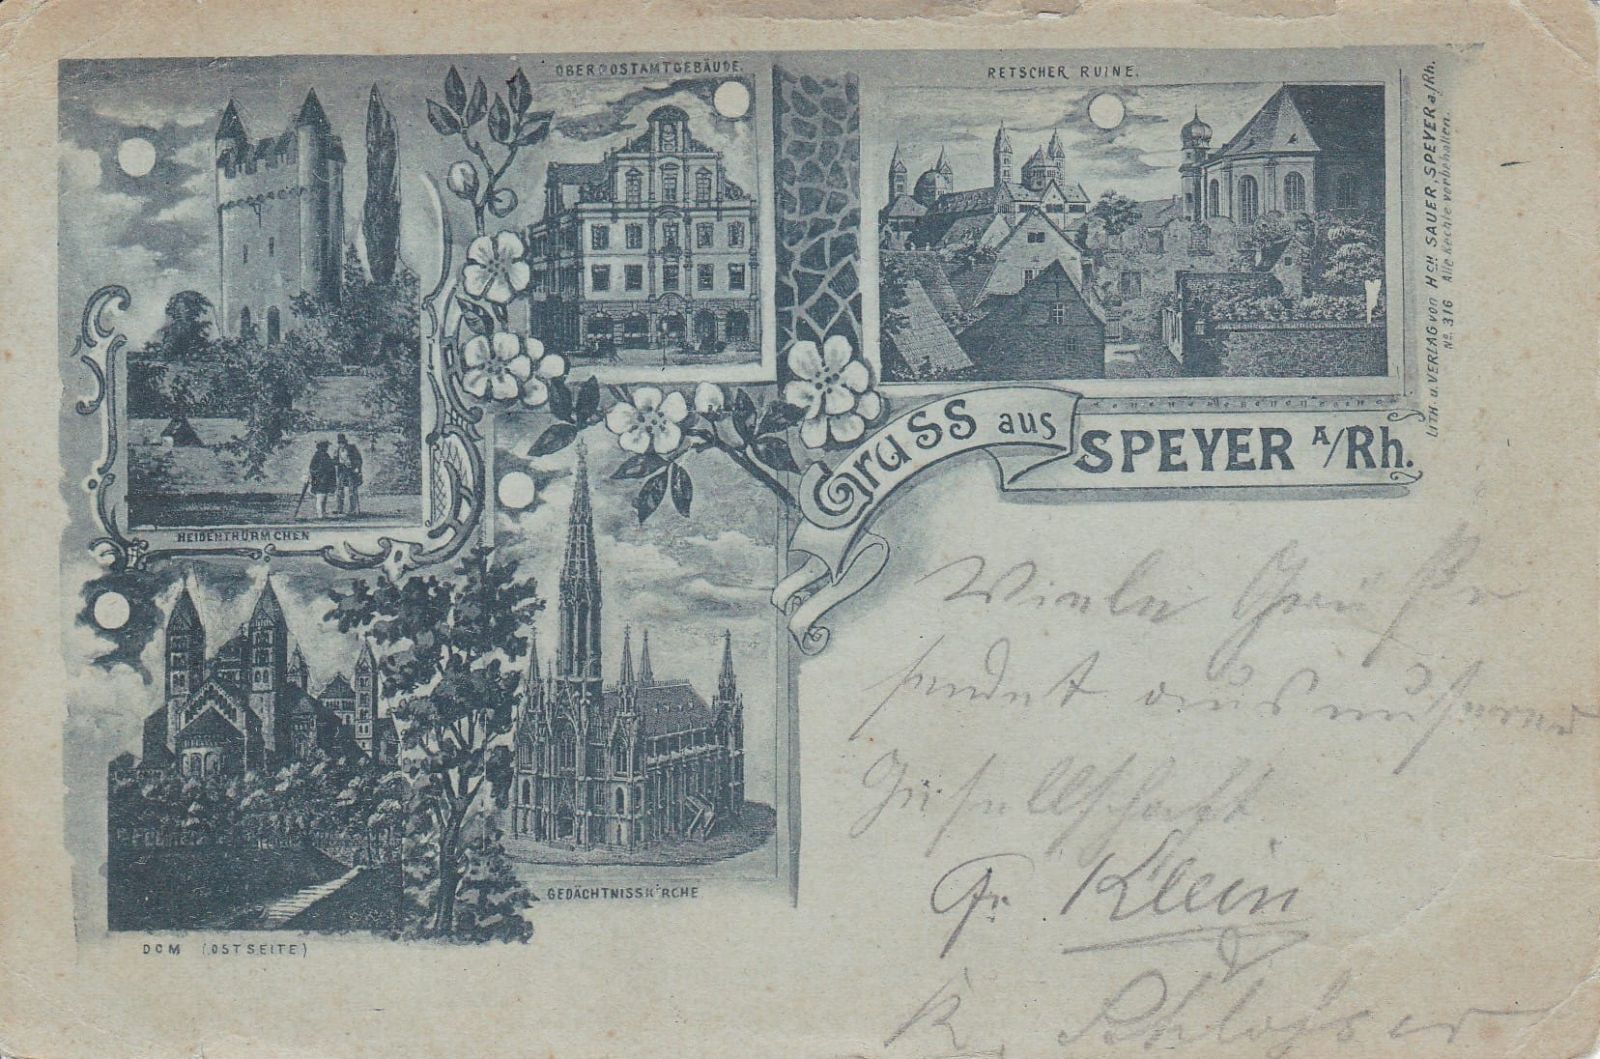 OBERPOSTAMTGEBÄUDE.
RETSCHER RUINE.
LITH. u. VERLAG von HCH. SAUER, SPEYER a/Rh.
No. 316 Alle Rechte vorbhalten.
Gruss aus
SPEYER A/Rh.
HEIDENTHÜRMCHEN
GEDÄCHTNISSKIRCHE
DOM (OSTSEITE)
Viele Grüße
sendet aus unserer
Gesellschaft
Fr. Klein
K. Schlosser